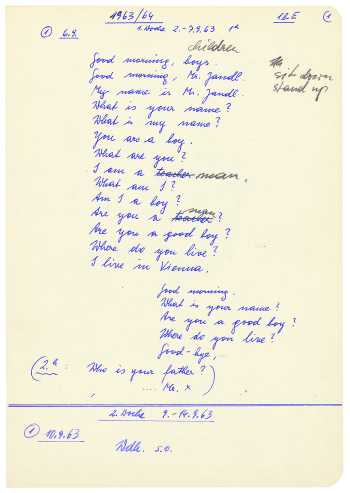 1963/64
1. Woche 2.-7.9.63
① 6.9.
children
Good morning, boys.
Good morning, Mr. Jandl.
My name is Mr. Jandl.
sit down
stand up
What is your name?
What is my name?
You are a boy.
What are you?
I am a teacher man.
What am I?
Am I a boy?
man
Are you a teacher?
Are you a good boy?
Where do you live?
I live in Vienna.
Good morning.
What is your name?
Are you a good boy?
Where do you live?
Good-bye,
(2.h: Who is your father?
, .... Mr. X)
2. Woche 9.-14.9.63
① 10.9.63
Wdh. s.o.